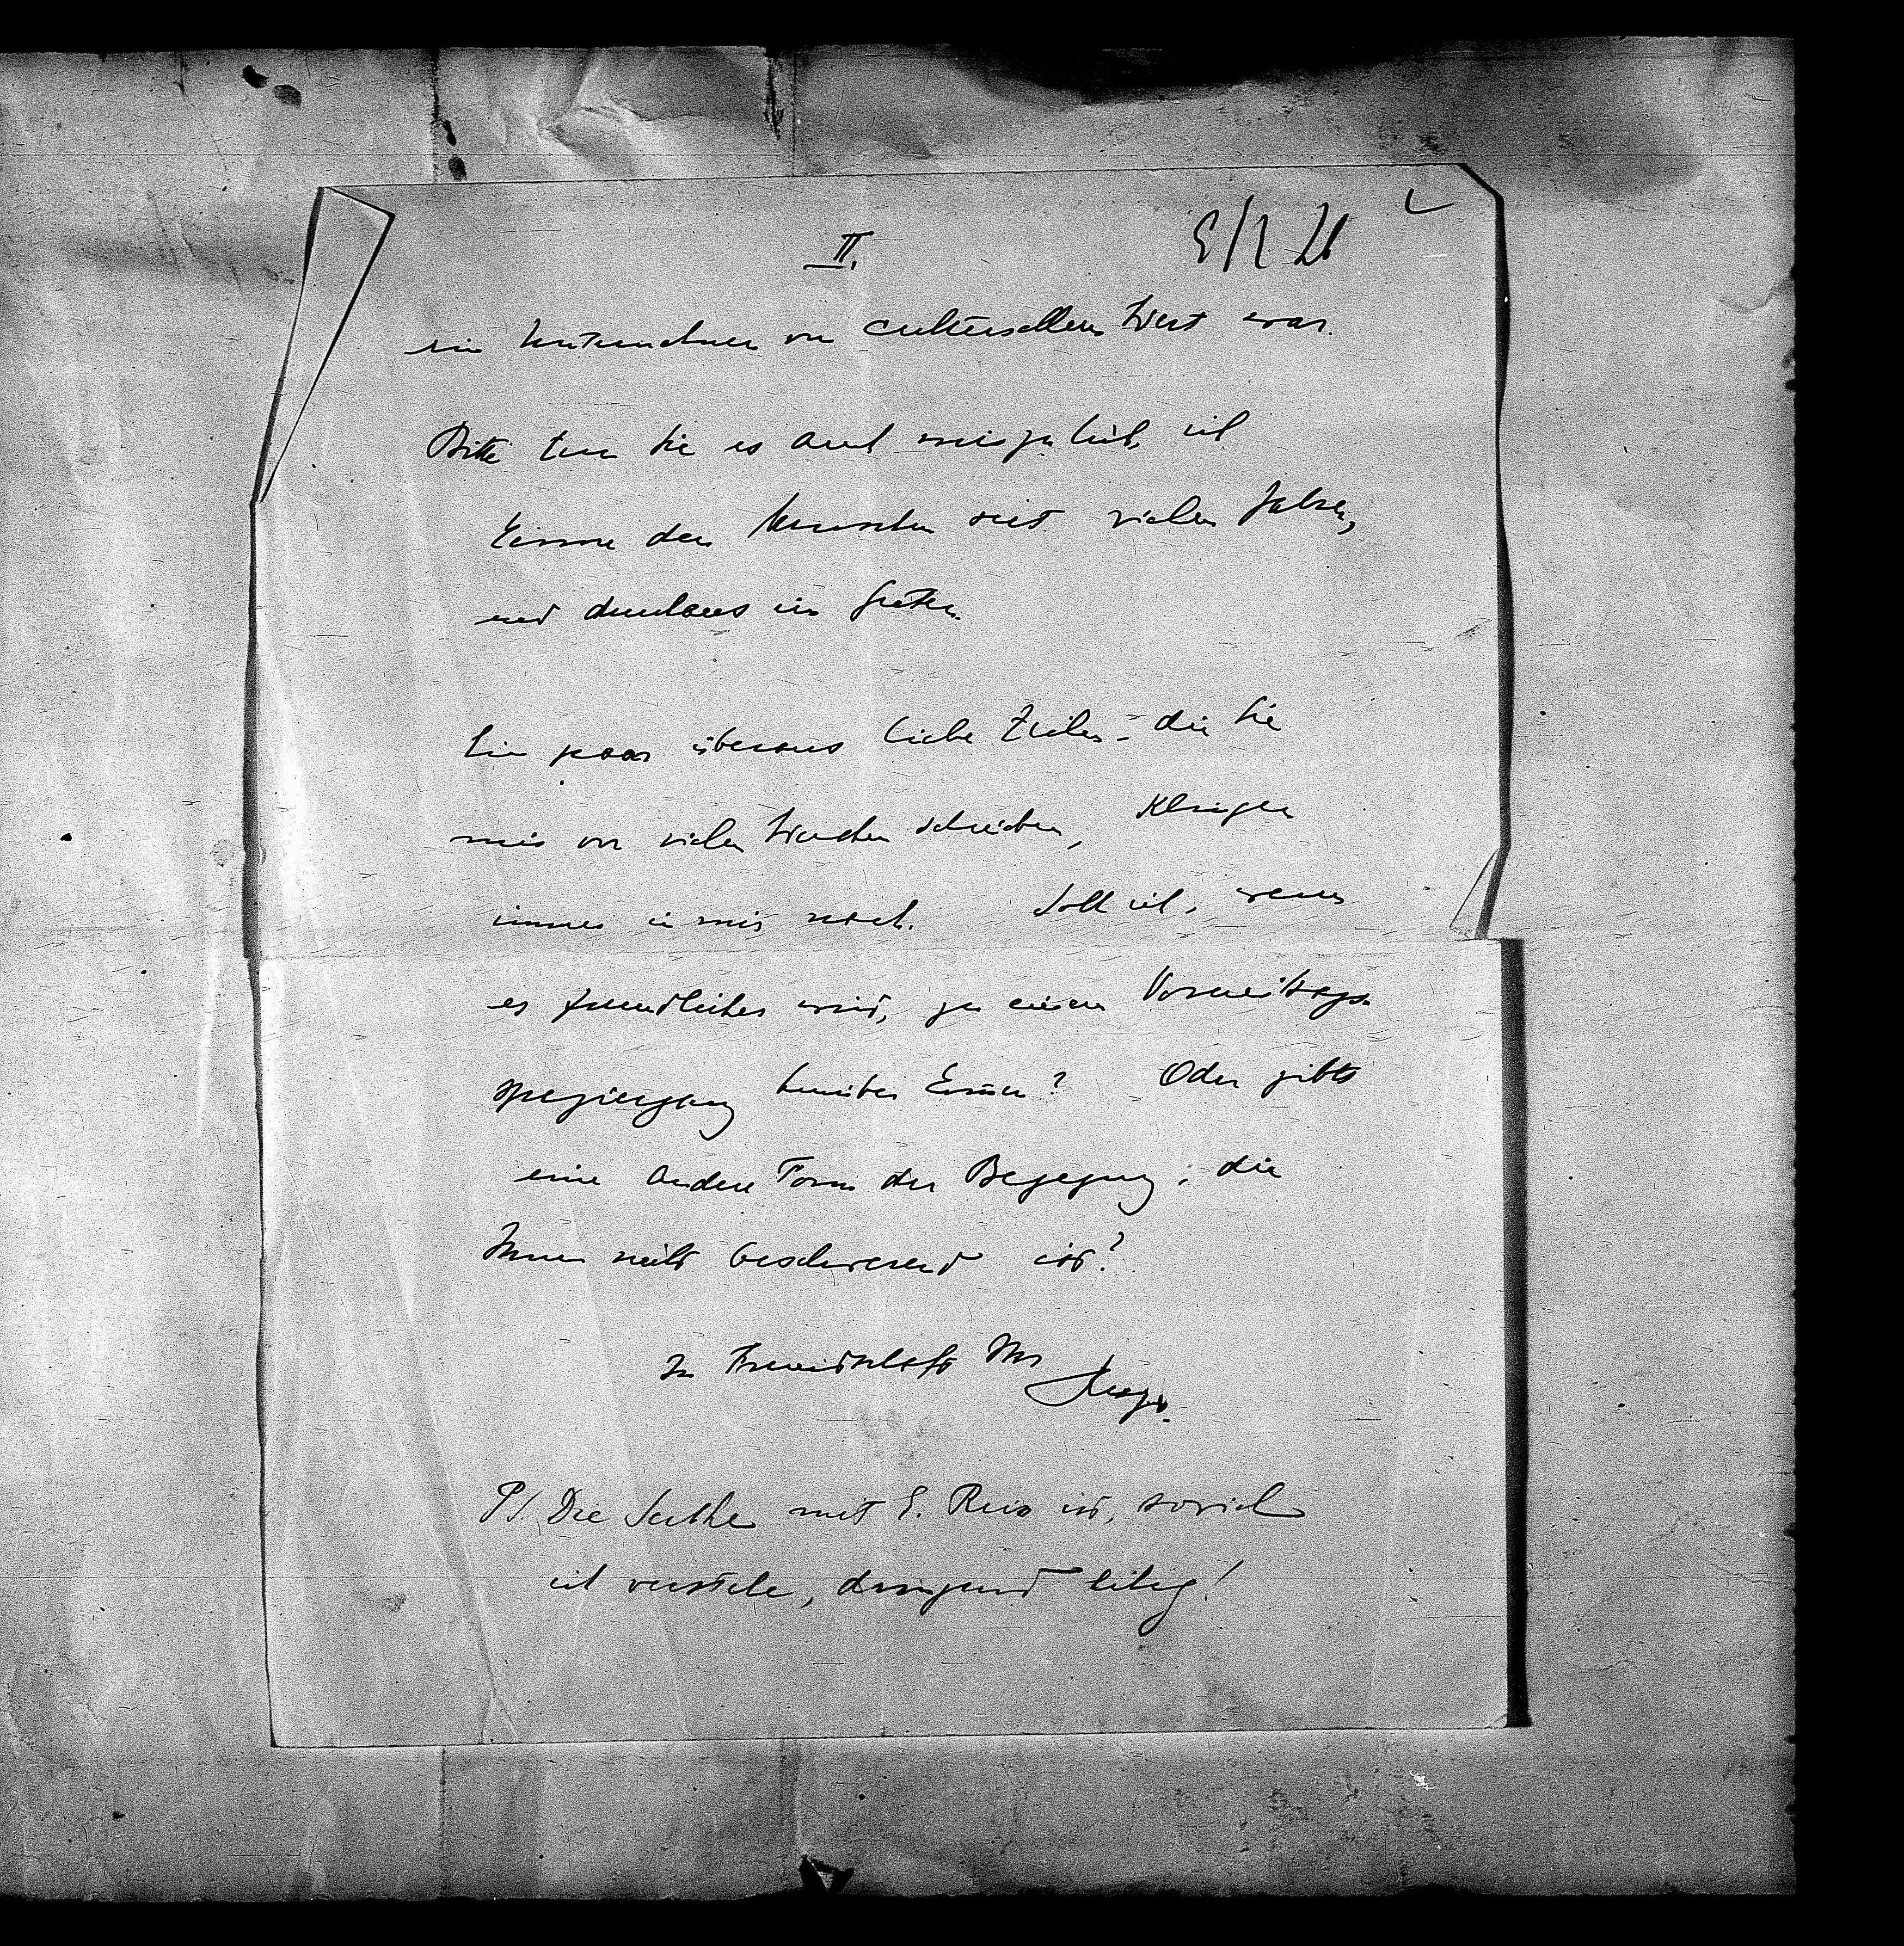 II.
ein Unternehmen von culturellem Wert war.
Bitte tun Sie es auch mir zu lieb, ich
kenne den Menschen seit vielen Jahren,
und durchaus im Guten.
Die paar überaus liebe Zeilen – die Sie
mir vor vielen Wochen schrieben, klingen
immer in mir nach. Soll ich, wenn
es freundlicher wird, zu einem Vormittags-
spaziergang hinüber kommen? Oder gibts
eine andere Form der Begegnung, die
Ihnen nicht beschwerend ist?
In Freundschaft Ihr
PS. Die Sache mit E. Reiss ist, soviel
ich verstehe, dringend eilig!